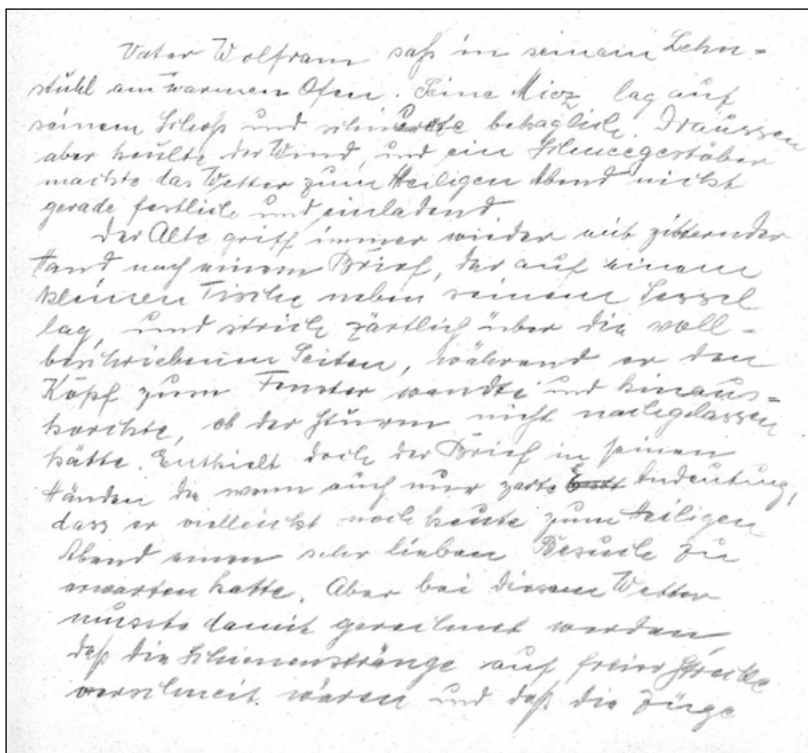 Vater Wolfram saß in seinem Lehn-
stuhl am warmen Ofen. Seine Miez lag auf
seinem Schoß und schnurrte behaglich. Draussen
aber heulte der Wind, und ein Schneegestöber
machte das Wetter zum Heiligen Abend nicht
gerade festlich und einladend.
Der Alte griff immer wieder mit zitternder
Hand nach einem Brief, der auf einem
kleinen Tische neben seinem Sessel
lag, und strich zärtlich über die voll-
beschriebenen Seiten, während er den
Kopf zum Fenster wandte und hinaus-
horchte, ob der Sturm nicht nachgelassen
hätte. Enthielt doch der Brief in seinen
Händen die wenn auch nur zarte Andeutung,
dass er vielleicht noch heute zum Heiligen
Abend einen sehr lieben Besuch zu
erwarten hatte. Aber bei diesem Wetter
musste damit gerechnet werden,
daß die Schienenstränge auf freier Strecke
verschneit wären und daß die Züge